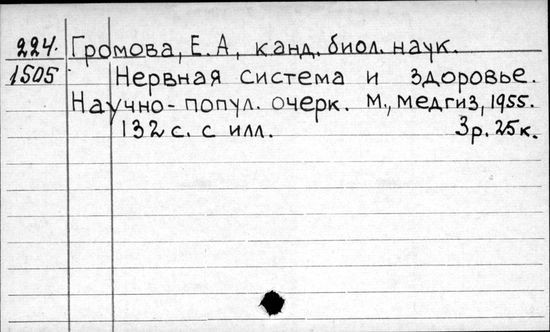 224. Громова, Е. А., канд. биол. наук.
1505 Нервная система и здоровье.
Научно-попул. очерк. М., Медгиз, 1955.
132 с. с илл. 3р. 25к.